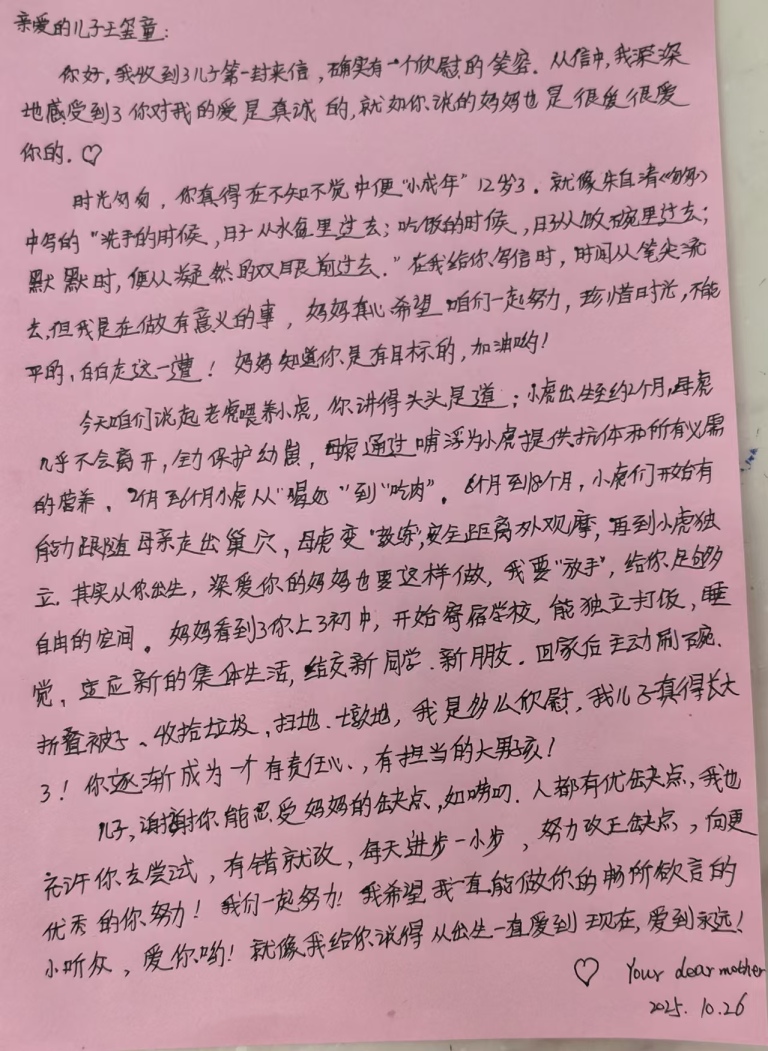 亲爱的儿子王玺童:
你好,我收到了儿子第一封来信,确实有一个欣慰的笑容.从信中,我深深
地感受到了你对我的爱是真诚的,就如你说的妈妈也是很爱很爱
你的.♡
时光匆匆,你真得在不知不觉中便"小成年"12岁了.就像朱自清《匆匆》
中写的"洗手的时候,日子从水盆里过去;吃饭的时候,日子从饭碗里过去;
默默时,便从凝然的双眼前过去."在我给你写信时,时间从笔尖流
去,但我是在做有意义的事,妈妈真心希望咱们一起努力,珍惜时光,不能
平的,白白走这一遭!妈妈知道你是有目标的,加油哟!
今天咱们说起老虎喂养小虎,你讲得头头是道;小虎出生至约2个月,母虎
几乎不会离开,全力保护幼崽,母虎通过哺浮为小虎提供抗体和所有必需
的营养.2个月至6个月小虎从"喝奶"到"吃肉".6个月到18个月,小虎们开始有
能力跟随母亲走出巢穴,母虎变"教练",安全距离外观摩,再到小虎独
立.其实从你出生,深爱你的妈妈也要这样做,我要"放手",给你足够多
自由的空间.妈妈看到了你上了初中,开始寄宿学校,能独立打饭,睡
觉,适应新的集体生活,结交新同学.新朋友.回家后主动刷碗.
折叠被子、收拾垃圾.扫地.土敦地,我是多么欣慰,我儿子真得长大
了!你逐渐成为一个有责任心、,有担当的大男孩!
儿子,谢谢你能忍受妈妈的缺点,如唠叨.人都有优缺点,我也
允许你去尝试,有错就改,每天进步一小步,努力改正缺点,向更
优秀的你努力!我们一起努力!我希望我一直能做你的畅所欲言的
小听众,爱你哟!就像我给你说得从出生一直爱到现在,爱到永远!
♡ Your dear mother
2025.10.26